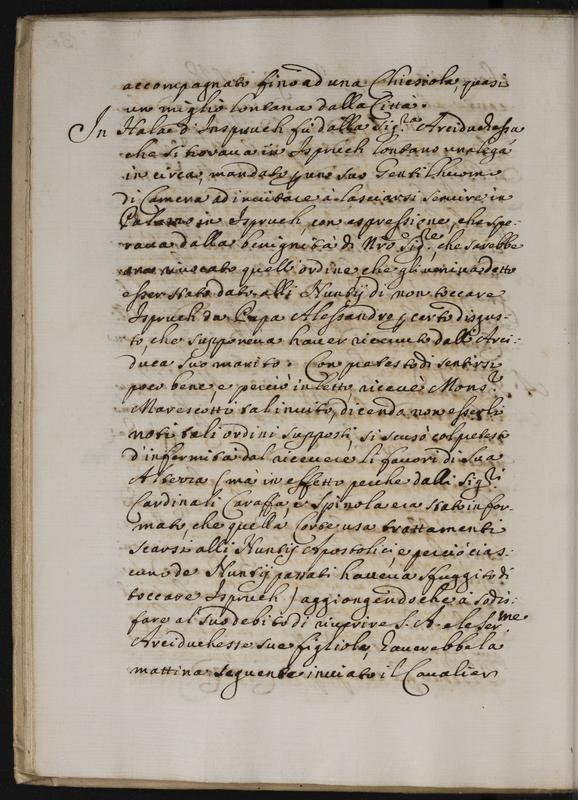 accompagnato fino ad una Chiesiola, quasi
un miglio lontana dalla Città.
In Hala d'Inspruch fù dalla Sig.ra Arciduchessa
che si trovava in Ispruch lontano una lega
in circa, mandato p uno suo Gentilhuomo
di Camera ad invitare à lasciarsi servire in
Palazzo in Ispruch, con espressione, che spe-
rava dalla benignità di Nro Sig.re, che sarebbe
rivocato quell'ordine che gli veniva detto
esser stato dato alli Nuntij di non toccare
Ispruch da Papa Alessandro p certo disgus-
to, che supponeva haver ricevuto dall'Arci-
duca suo marito. Con pretesto di sentirsi
poco bene, e perciò in letto ricevè Mons.r
Marescotti tal invito, dicendo non esserli
noti tali ordini supposti, si scusò col pretesto
d'infermità dal ricevere li favori di sua
Altezza (mà in effetto perche dalli Sig.ri
Cardinali Caraffa, e Spinola era stato infor-
mato, che quella Corte usa trattamenti
scarsi alli Nuntij Apostolici, e perciò cias-
cuno de Nuntij passati haveva sfuggito di
toccare Ispruch) aggiongendo che à sodis-
fare al suo debito di riverire S. A. e le Ser.me
Arciduchesse sue figliole, haverebbe la
mattina seguente inviato il Cavalier